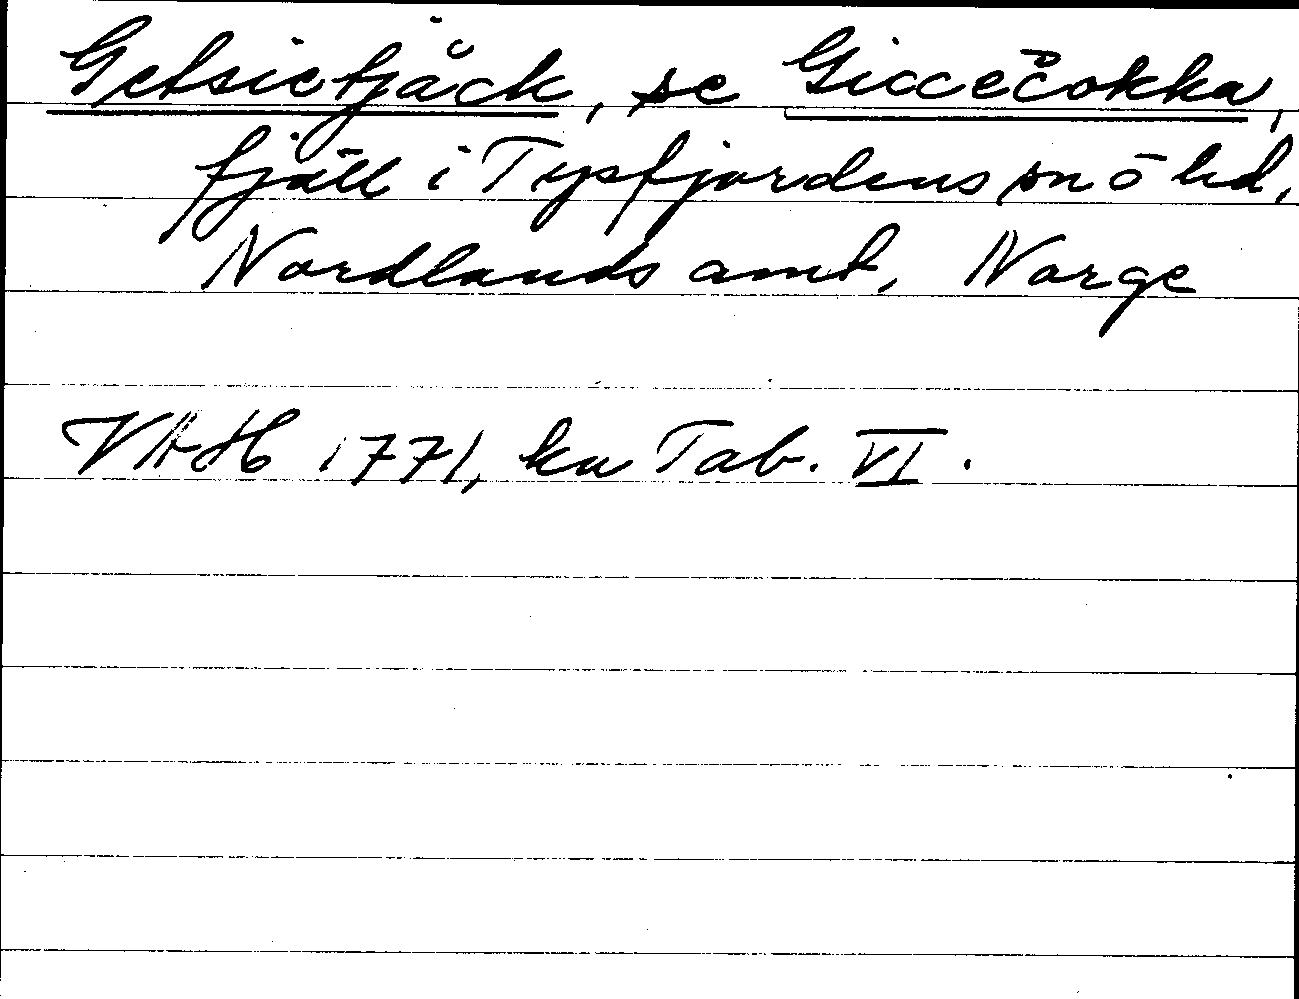 Getsietjåck, se Giccečokka,
fjäll i Tysfjordens sn o hd,
Nordlands amt, Norge
VAH 1771, ka Tab. VI.